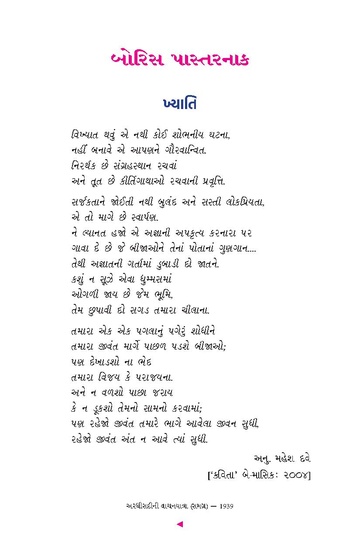 બોરિસ પાસ્તરનાક
ખ્યાતિ
વિખ્યાત થવું એ નથી કોઈ શોભનીય ઘટના,
નહીં બનાવે એ આપણને ગૌરવાન્વિત.
નિરર્થક છે સંગ્રહસ્થાન રચવાં
અને તૂત છે કીર્તિગાથાઓ રચવાની પ્રવૃત્તિ.
સર્જકતાને જોઈતી નથી બુલંદ અને સસ્તી લોકપ્રિયતા,
એ તો માગે છે સ્વાર્પણ.
ને લ્યાનત હજો એ અજ્ઞાની અપકૃત્ય કરનારા પર
ગાવા દે છે જે બીજાઓને તેનાં પોતાનાં ગુણગાન....
તેથી અજ્ઞાતની ગર્તામાં ડુબાડી દો જાતને.
કશું ન સૂઝે એવા ધુમ્મસમાં
ઓગળી જાય છે જેમ ભૂમિ,
તેમ છુપાવી દો સગડ તમારા ચીલાના.
તમારા એક એક પગલાનું પગેરું શોધીને
તમારા જીવંત માર્ગે પાછળ પડશે બીજાઓ;
પણ દેખાડશો ના ભેદ
તમારા વિજય કે પરાજયના.
અને ન વળશો પાછા જરાય
કે ન ડૂકશો તેમનો સામનો કરવામાં;
પણ રહેજો જીવંત તમારે ભાગે આવેલા જીવન સુધી,
રહેજો જીવંત અંત ન આવે ત્યાં સુધી.
અનુ. મહેશ દવે
['કવિતા' બે-માસિક: ૨૦૦૪]
અરધીસદીની વાચનયાત્રા (સમગ્ર) — 1939